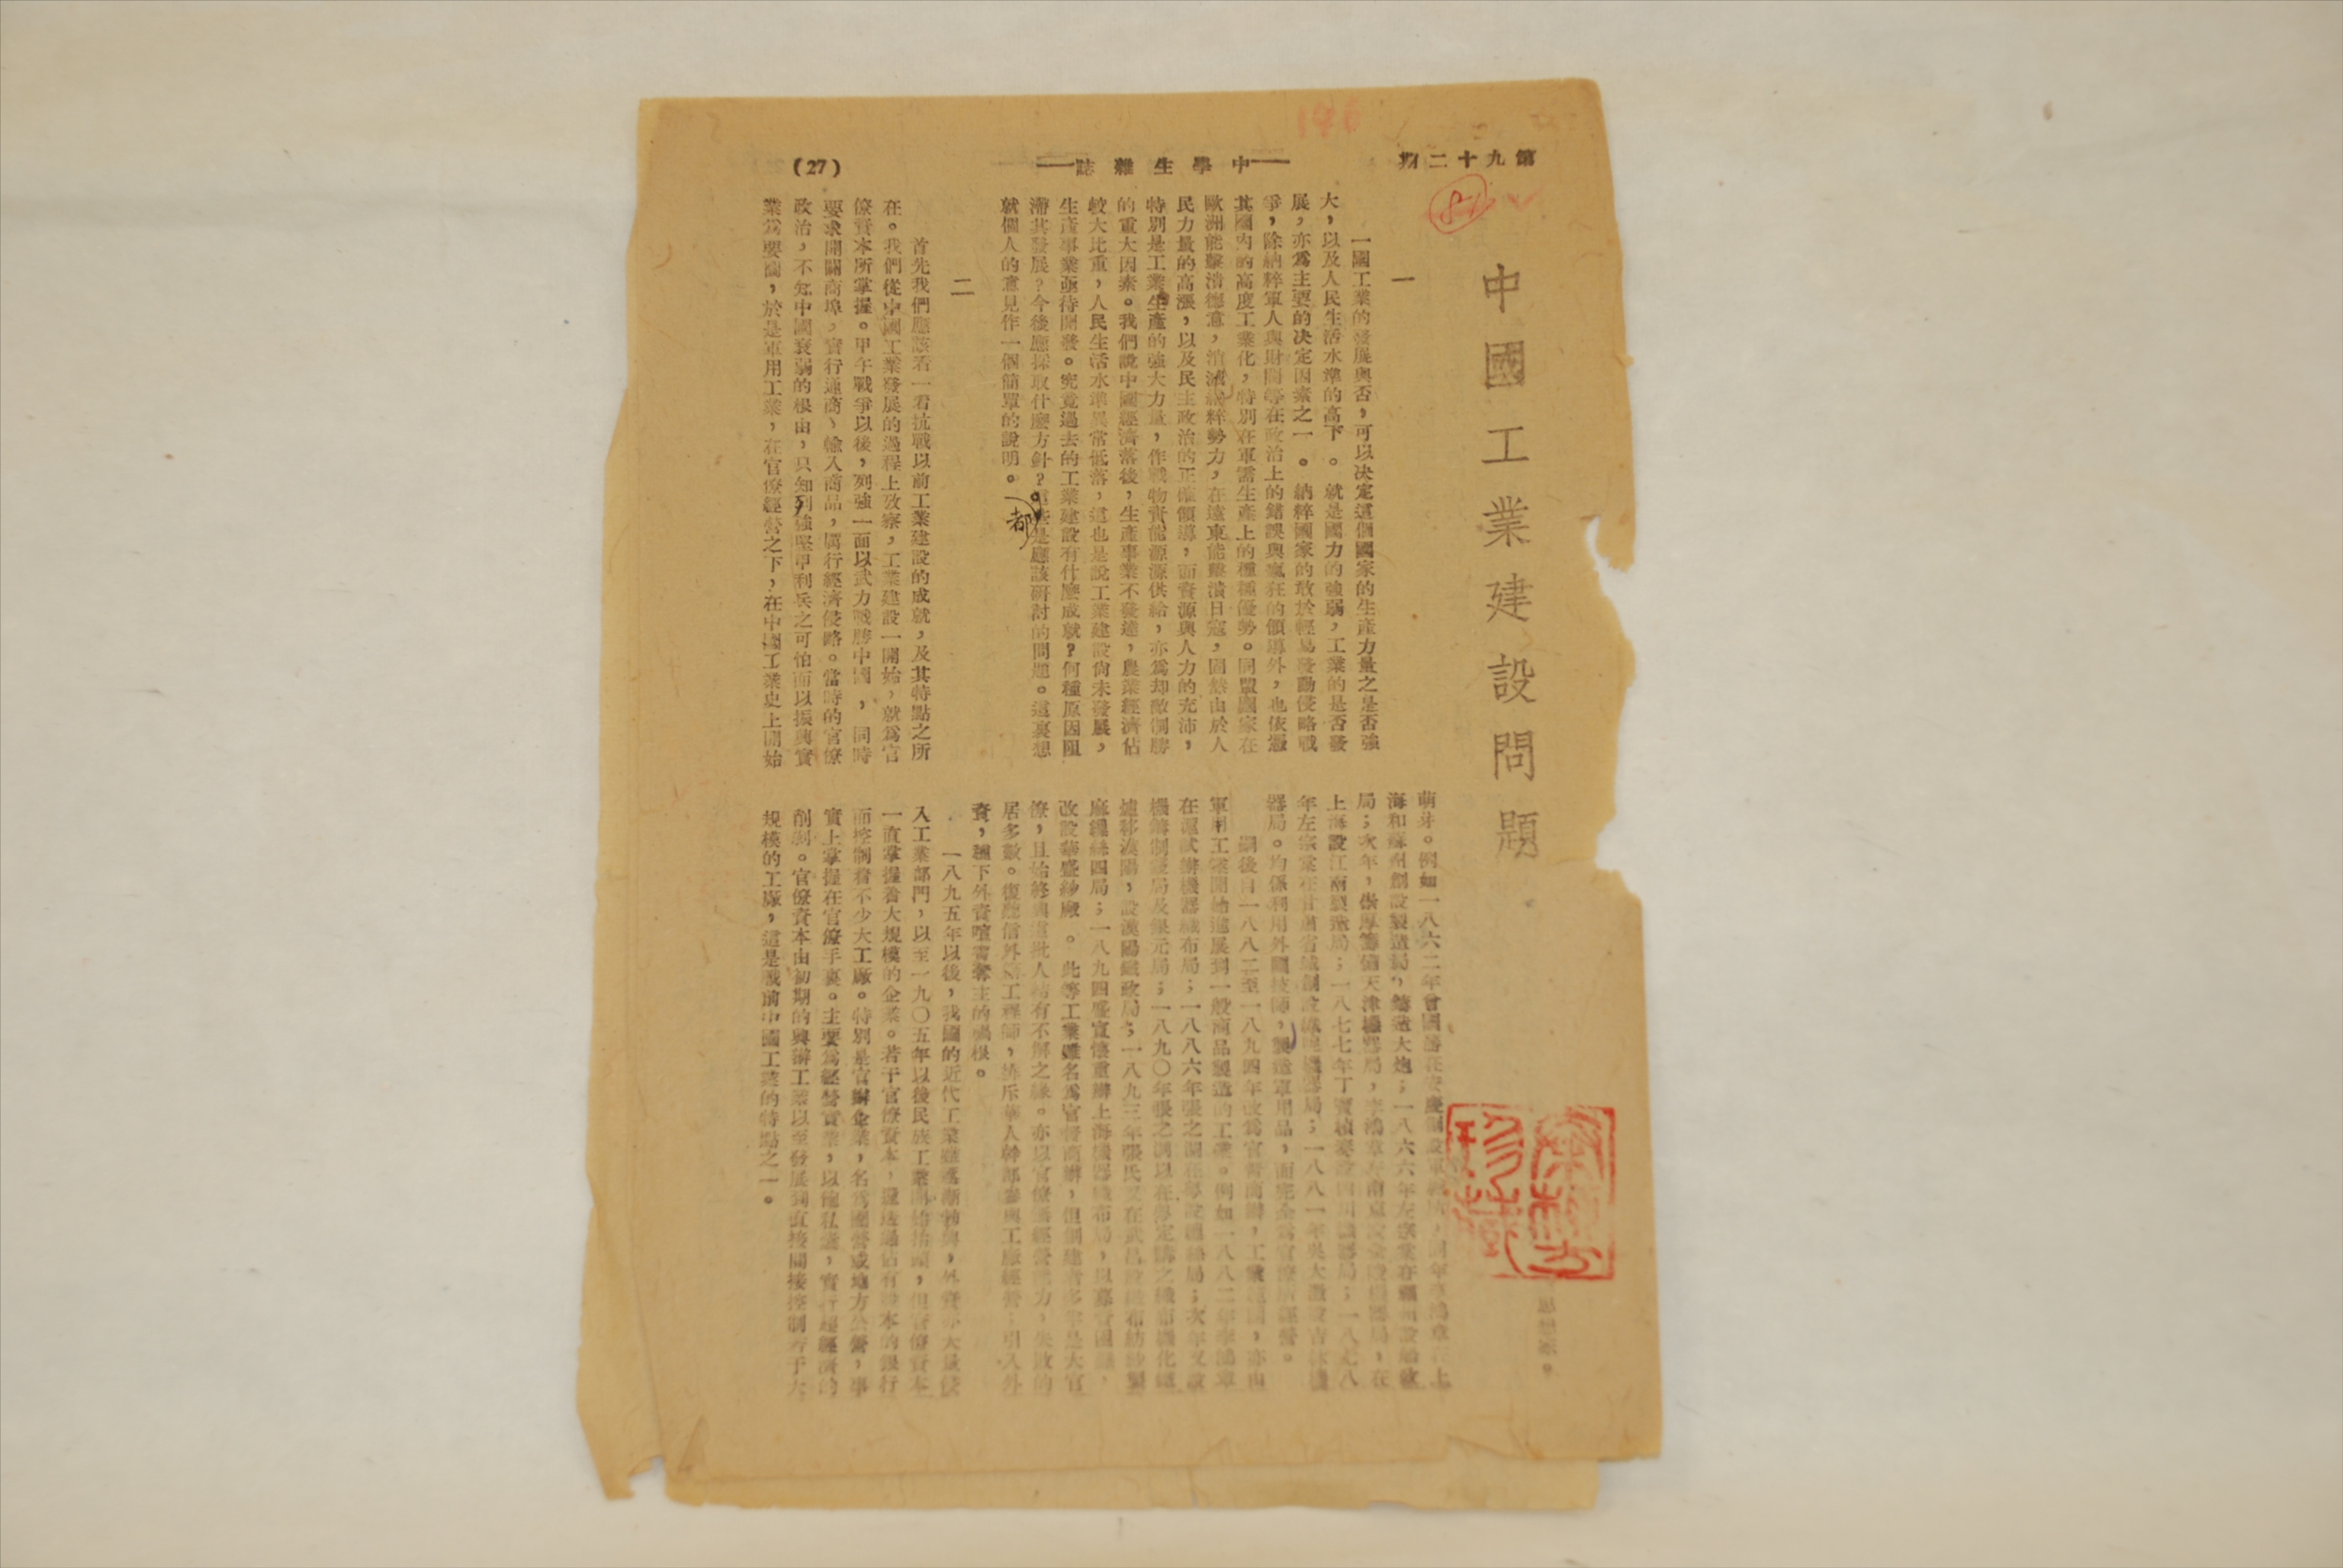 第九十二期
中學生雜誌
(27)
中國工業建設問題
一
一國工業的發展與否，可以決定這個國家的生產力量之是否強
大，以及人民生活水準的高下。就是國力的強弱，工業的是否發
展，亦爲主要的決定因素之一。納粹國家的敢於輕易發動侵略戰
爭，除納粹軍人與財閥等在政治上的錯誤與瘋狂的領導外，也依憑
其國內的高度工業化，特別在軍需生產上的種種優勢。同盟國家在
歐洲能擊潰德意，消滅納粹勢力，在遠東能擊潰日寇，固然由於人
民力量的高漲，以及民主政治的正確領導，而資源與人力的充沛，
特別是工業生產的強大力量，作戰物資能源源供給，亦爲却敵制勝
的重大因素。我們說中國經濟落後，生產事業不發達，農業經濟佔
較大比重，人民生活水準異常低落，這也是說工業建設尚未發展，
生產事業亟待開發。究竟過去的工業建設有什麼成就？何種原因阻
滯其發展？今後應採取什麼方針？這些都是應該研討的問題。這裏想
就個人的意見作一個簡單的說明。
二
首先我們應該看一看抗戰以前工業建設的成就，及其特點之所
在。我們從中國工業發展的過程上攷察，工業建設一開始，就爲官
僚資本所掌握。甲午戰爭以後，列強一面以武力戰勝中國，同時
要求開闢商埠，實行通商、輸入商品，厲行經濟侵略。當時的官僚
政治，不知中國衰弱的根由，只知列強堅甲利兵之可怕而以振興實
業爲要圖，於是軍用工業，在官僚經營之下，在中國工業史上開始
萌芽。例如一八六二年曾國藩在安慶創設軍械所，同年李鴻章在上
海和蘇州創設製造局，鑄造大炮；一八六六年左宗棠在福州設船政
局；次年，崇厚籌備天津機器局，李鴻章在南京設金陵機器局，在
上海設江南製造局；一八七七年丁寶楨奏設四川機器局；一八七八
年左宗棠在甘肅省城創設織呢機器局；一八八一年吳大澂設吉林機
器局。均係利用外國技師，製造軍用品，而完全爲官僚所經營。
嗣後自一八八二至一八九四年改爲官督商辦，工業範圍，亦由
軍用工業開始進展到一般商品製造的工業。例如一八八二年李鴻章
在滬試辦機器織布局；一八八六年張之洞在粵設繅絲局；次年又設
機鑄制錢局及銀元局；一八九〇年張之洞以在粵定購之織布機化鐵
爐移漢陽，設漢陽鐵政局；一八九三年張氏又在武昌設織布紡紗製
麻繅絲四局；一八九四盛宣懷重辦上海機器織布局，以募會困難，
改設華盛紗廠。此等工業雖名爲官督商辦，但創建者多半是大官
僚，且始終與這批人結有不解之緣。亦以官僚無經營能力，失敗的
居多數。復聽信外籍工程師，排斥華人幹部參與工廠經營；引入外
資，種下外資喧賓奪主的禍根。
一八九五年以後，我國的近代工業雖逐漸勃興，外資亦大量侵
入工業部門，以至一九〇五年以後民族工業開始抬頭，但官僚資本
一直掌握着大規模的企業。若干官僚資本，還透過佔有資本的銀行
而控制着不少大工廠。特別是官辦企業，名爲國營或地方公營，事
實上掌握在官僚手裏。主要爲經營實業，以飽私囊，實行超經濟的
削剝。官僚資本由初期的興辦工業以至發展到直接間接控制若干大
規模的工廠，這是戰前中國工業的特點之一。